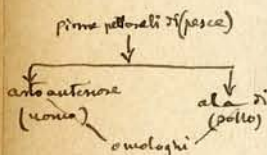 pinne pettorali di (pesce)
arto anteriore ala di
(uomo) (pollo)
omologhi